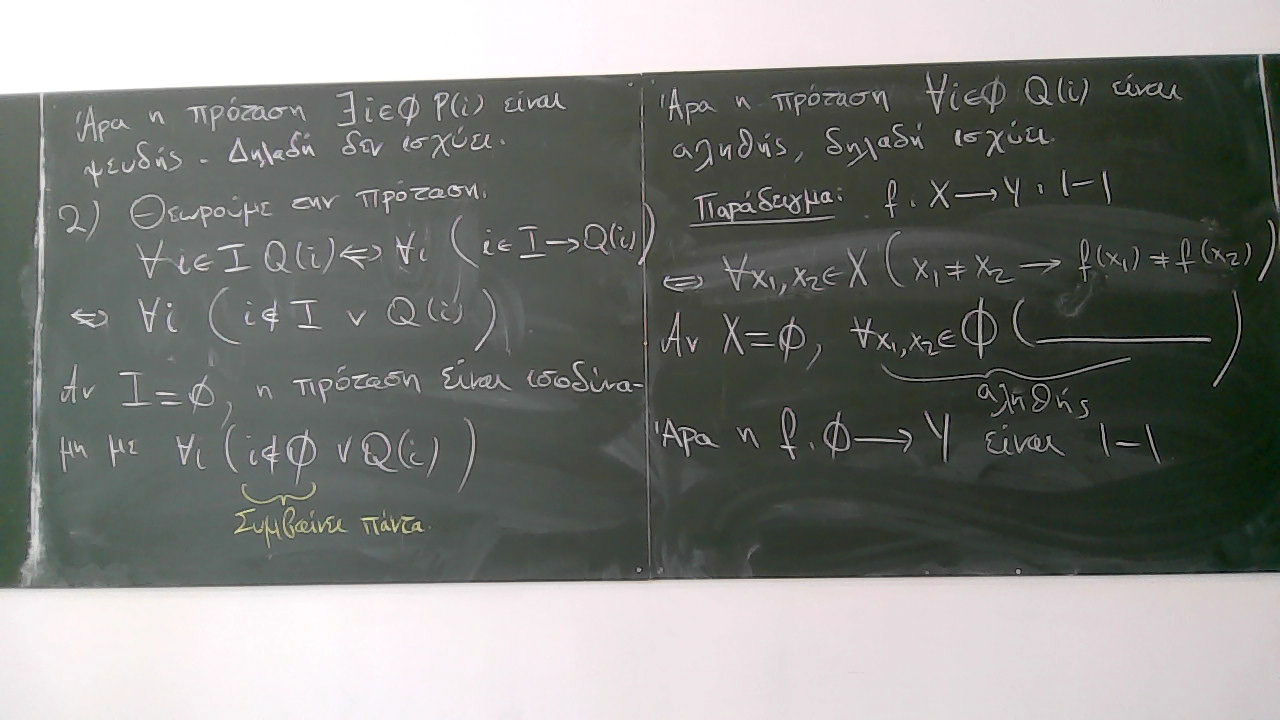 Άρα η πρόταση ∃i∈∅ P(i) είναι
ψευδής. Δηλαδή δεν ισχύει.
2) Θεωρούμε την πρόταση.
∀i∈I Q(i) ⇔ ∀i (i∈I → Q(i))
⇔ ∀i (i∉I ∨ Q(i))
Αν I=∅, η πρόταση είναι ισοδύνα-
μη με ∀i (i∉∅ ∨ Q(i))
Συμβαίνει πάντα.
Άρα η πρόταση ∀i∈∅ Q(i) είναι
αληθής, δηλαδή ισχύει.
Παράδειγμα: f: X → Y : 1-1
⇔ ∀x₁,x₂∈X (x₁≠x₂ → f(x₁)≠f(x₂))
Αν X=∅, ∀x₁,x₂∈∅ (______)
αληθής
Άρα η f: ∅ → Y είναι 1-1